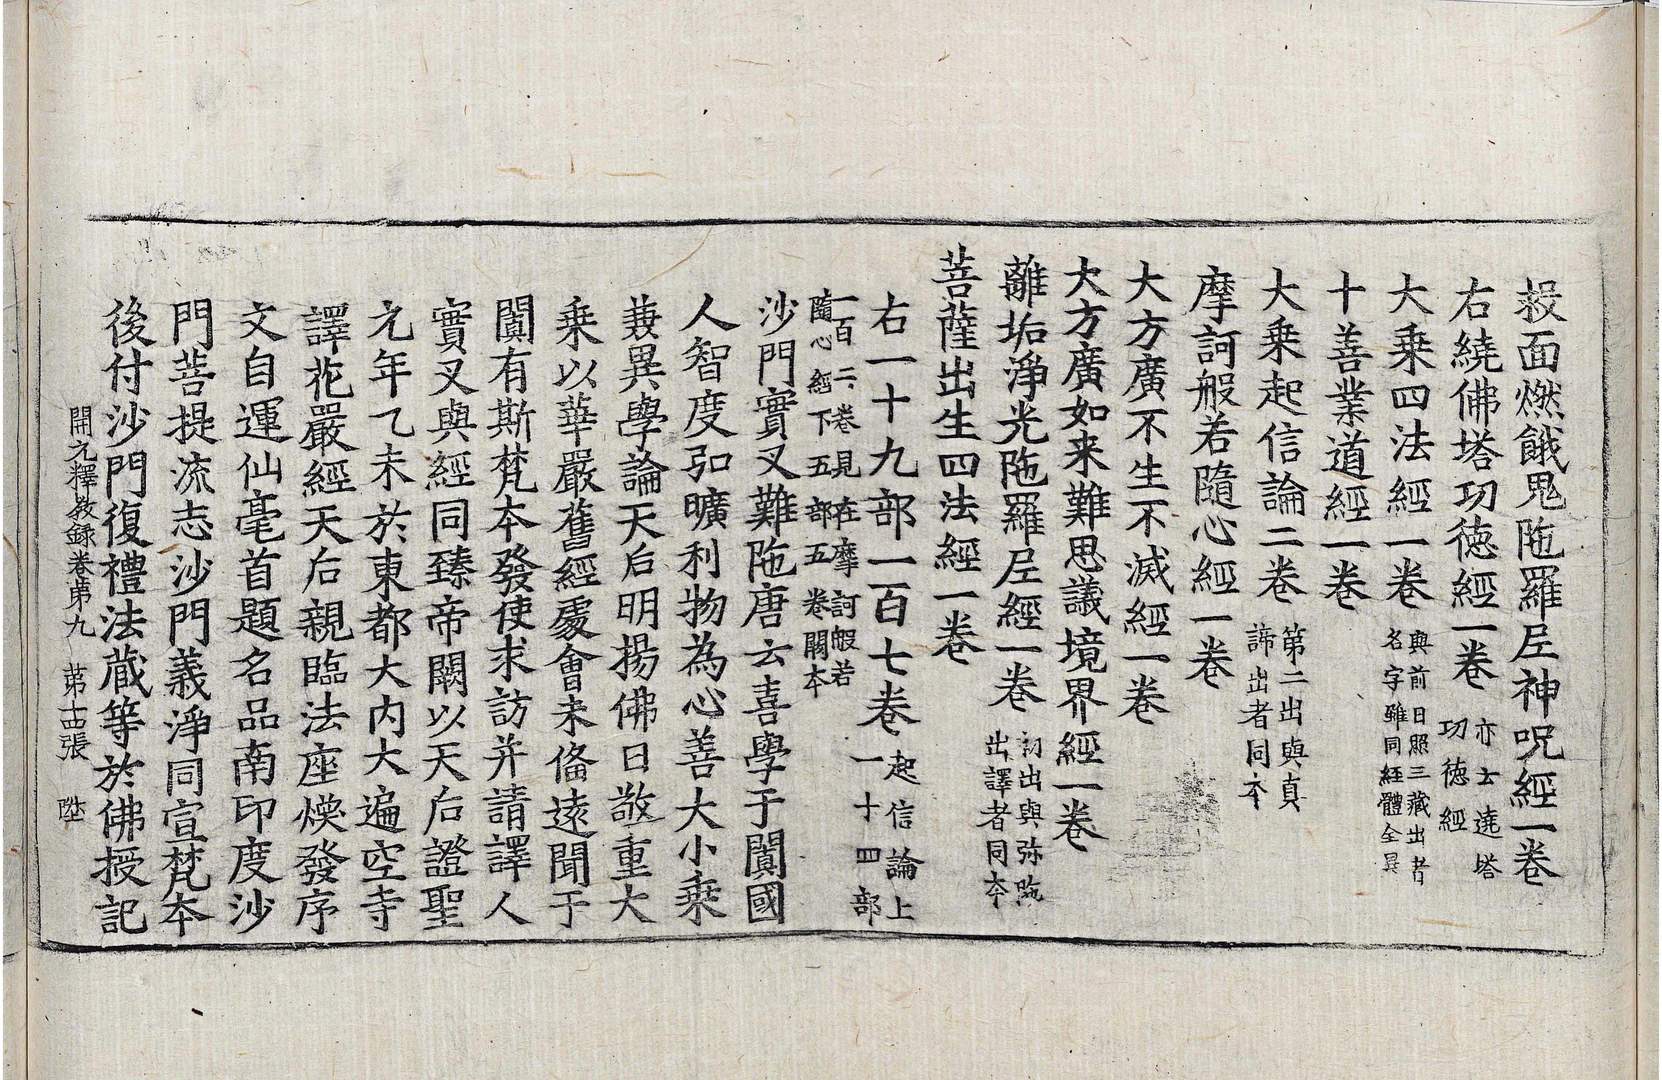 救面燃餓鬼陁羅尼神呪經一卷
右繞佛塔功徳經一卷 亦云遶塔功徳經
大乗四法經一卷 與前日照三藏出者名字雖同經體全異
十善業道經一卷
大乗起信論二卷 第二出與真諦出者同本
摩訶般若隨心經一卷
大方廣不生不滅經一卷
大方廣如来難思議境界經一卷
離垢淨光陁羅尼經一卷 初出與弥陁出譯者同本
菩薩出生四法經一卷
右一十九部一百七卷 起信論上一十四部
一百二卷見在摩訶般若隨心經下五部五卷闕本
沙門實叉難陁唐云喜學于闐國
人智度弘曠利物為心善大小乗
兼異學論天后明揚佛日敬重大
乗以華嚴舊經處會未俻逺聞于
闐有斯梵本發使求訪并請譯人
實叉與經同臻帝闕以天后證聖
元年乙未於東都大內大遍空寺
譯花嚴經天后親臨法座煥發序
文自運仙毫首題名品南印度沙
門菩提流志沙門義淨同宣梵本
後付沙門復禮法藏等於佛授記
開元釋教録卷第九 第十四張 陞